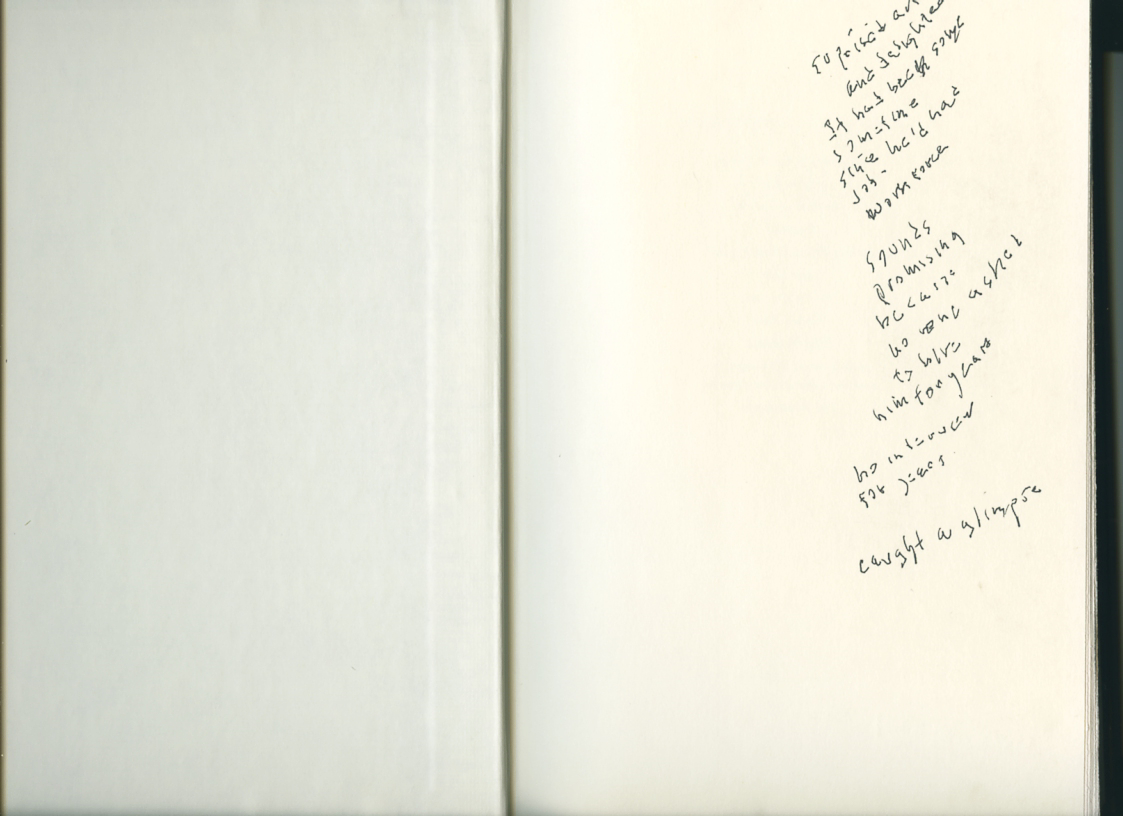 surprised an
and delighted
It had been some
some time
since he'd had
job.
Work
sounds
promising
because
no one asked
to hire
him for years
no interview
for years
caught a glimpse